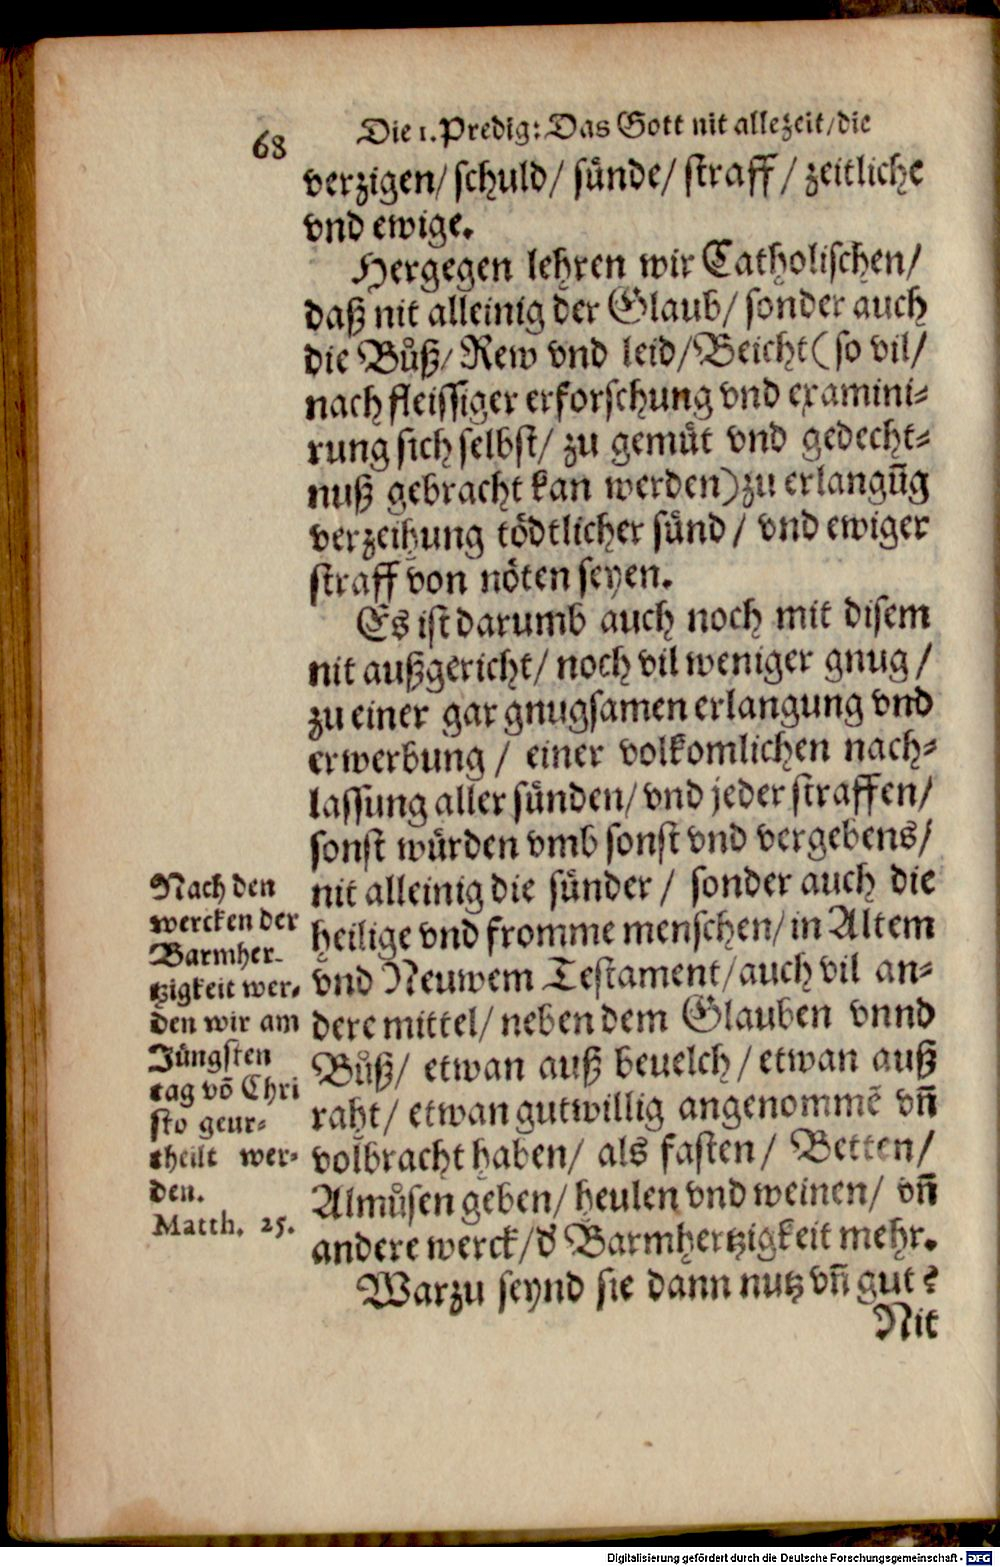 68
Die 1. Predig: Das Gott nit allezeit/die
verzigen/ schuld/ sünde/ straff/ zeitliche
vnd ewige.
Hergegen lehren wir Catholischen/
daß nit alleinig der Glaub/ sonder auch
die Bůß/ Rew vnd leid/Beicht(so vil/
nach fleissiger erforschung vnd examini-
rung sich selbst/ zu gemüt vnd gedecht-
nuß gebracht kan werden)zu erlangūg
verzeihung tödtlicher sünd/ vnd ewiger
straff von nöten seyen.
Es ist darumb auch noch mit disem
nit außgericht/ noch vil weniger gnug/
zu einer gar gnugsamen erlangung vnd
erwerbung/ einer volkomlichen nach-
lassung aller sünden/ vnd jeder straffen/
sonst würden vmb sonst vnd vergebens/
nit alleinig die sünder/ sonder auch die
heilige vnd fromme menschen/ in Altem
vnd Neuwem Testament/auch vil an-
dere mittel/ neben dem Glauben vnnd
Bůß/ etwan auß beuelch/ etwan auß
raht/ etwan gutwillig angenommē vn̄
volbracht haben/ als fasten/ Betten/
Almůsen geben/ heulen vnd weinen/ vn̄
andere werck/d' Barmhertzigkeit mehr.
Warzu seynd sie dann nutz vn̄ gut?
Nit
Nach den
wercken der
Barmher-
tzigkeit wer-
den wir am
Jüngsten
tag vō Chri
sto geur-
theilt wer-
den.
Matth. 25.
Digitalisierung gefördert durch die Deutsche Forschungsgemeinschaft - DFG